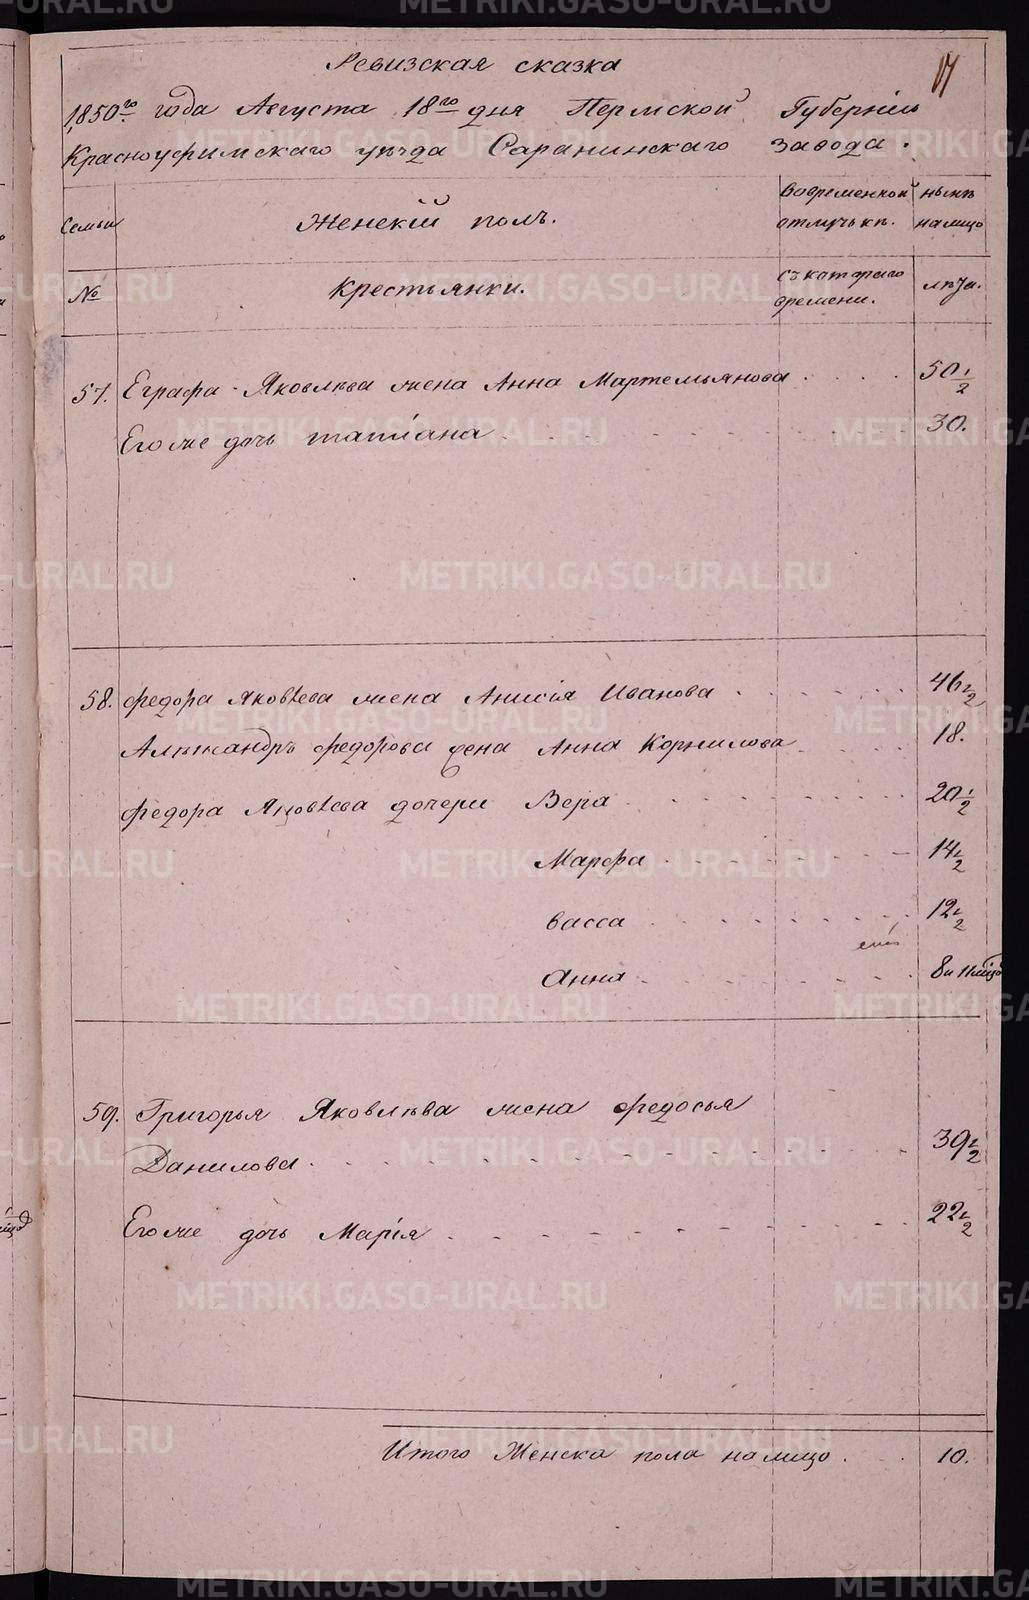 17
Ревизская сказка
1850го года Августа 18го дня Пермской Губернiи
Красноуфимскаго уѣзда Саранинскаго завода.
Семьи
Женскiй полъ.
Во временной отлучкѣ.
нынѣ на лицо
№
Крестьянки.
съ котораго времени.
лѣта.
57. Еграфа Яковлѣва жена Анна Мартемьянова 50 1/2
Его же дочь татiана 30.
58. Федора Яковлева жена Анисiя Иванова 46 1/2
Алѣксандръ Федорова жена Анна Корнилова 18.
Федора Яковлева дочери Вера 20 1/2
Марфа 14 1/2
васса 12 1/2
Анна 8 и 11
59. Григорья Яковлѣва жена Федосья
Данилова 39 1/2
Его же дочь Марiя 22 1/2
Итого Женска пола на лицо 10.
METRIKI.GASO-URAL.RU